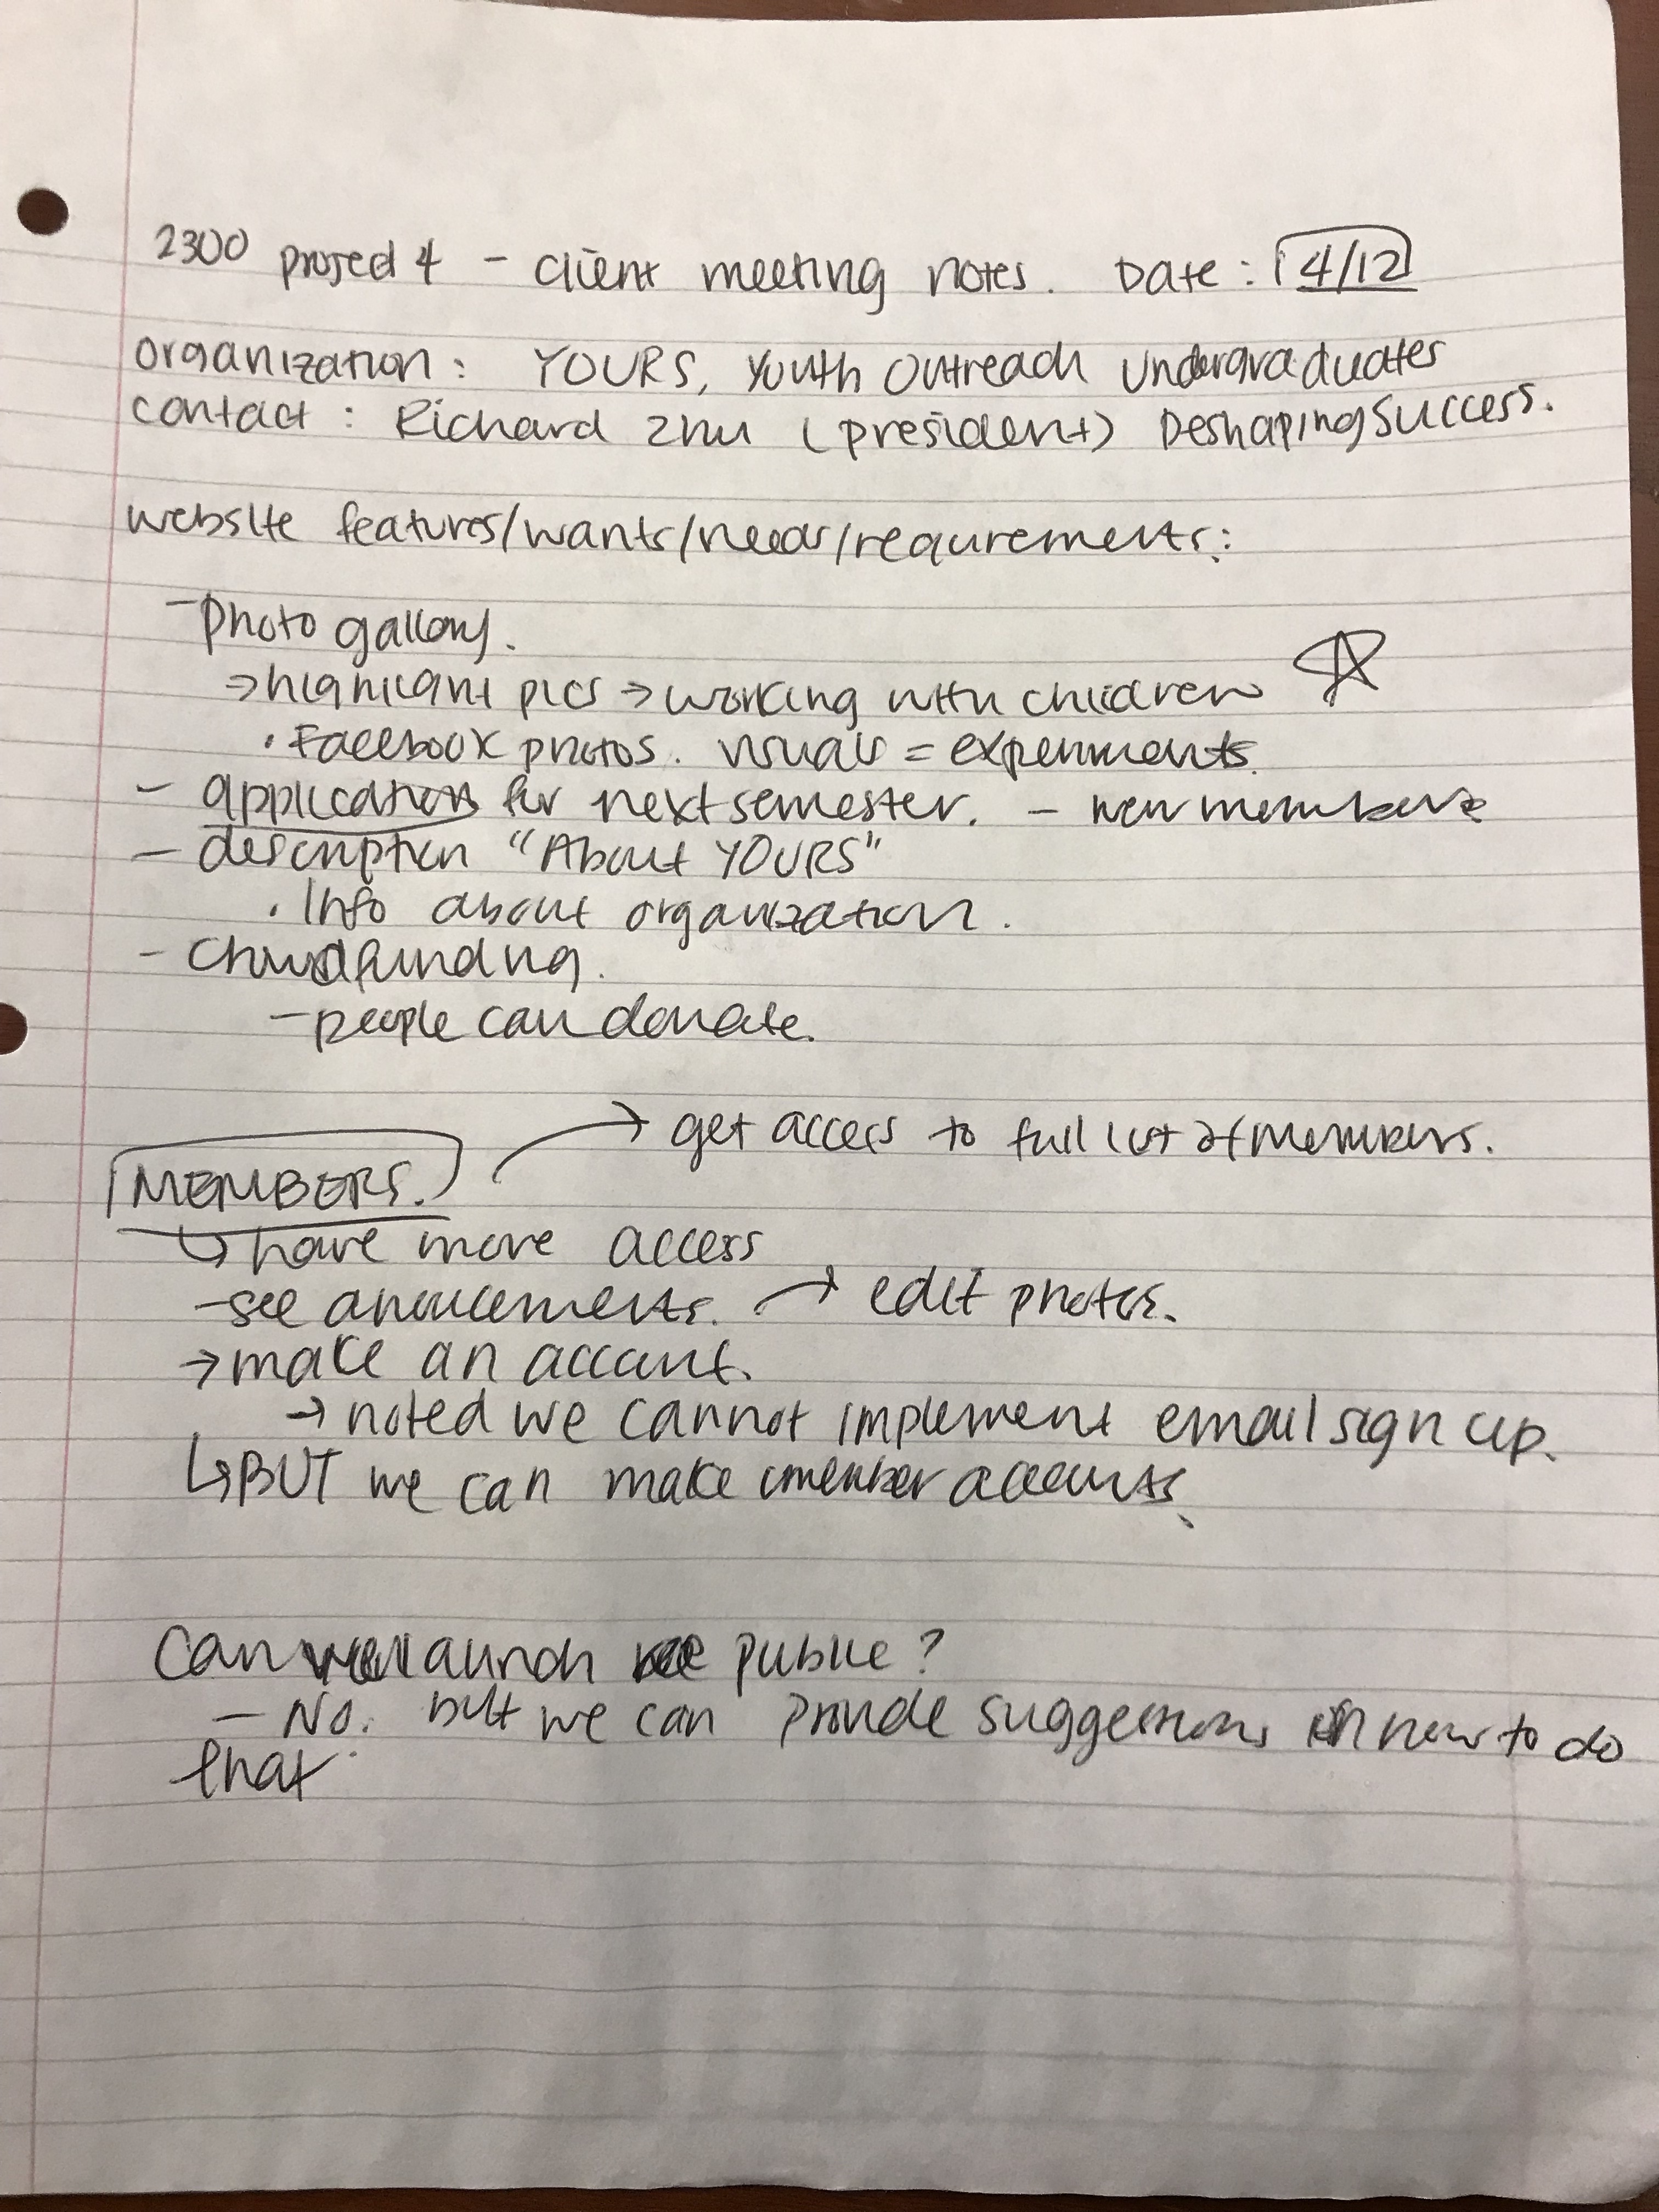 2300 project 4 - client meeting notes. Date: 4/12
organization: YOURS, Youth Outreach Undergraduates
contact: Richard Zhu (president) Deshaping Success.
website features/wants/needs/requirements:
- Photo gallery.
→ highlight pics → working with children
• Facebook photos. visuals = experiments.
- applications for next semester. - new members
- description "About YOURS"
• Info about organization.
- Crowdfunding.
- people can donate.
→ get access to full list of members.
MEMBERS.
↳ have more access
- see anoucements. → edit photos.
→ make an account.
→ noted we cannot implement email sign up.
↳ BUT we can make member accounts.
Can we launch public?
- No. but we can provide suggestions on how to do
that.